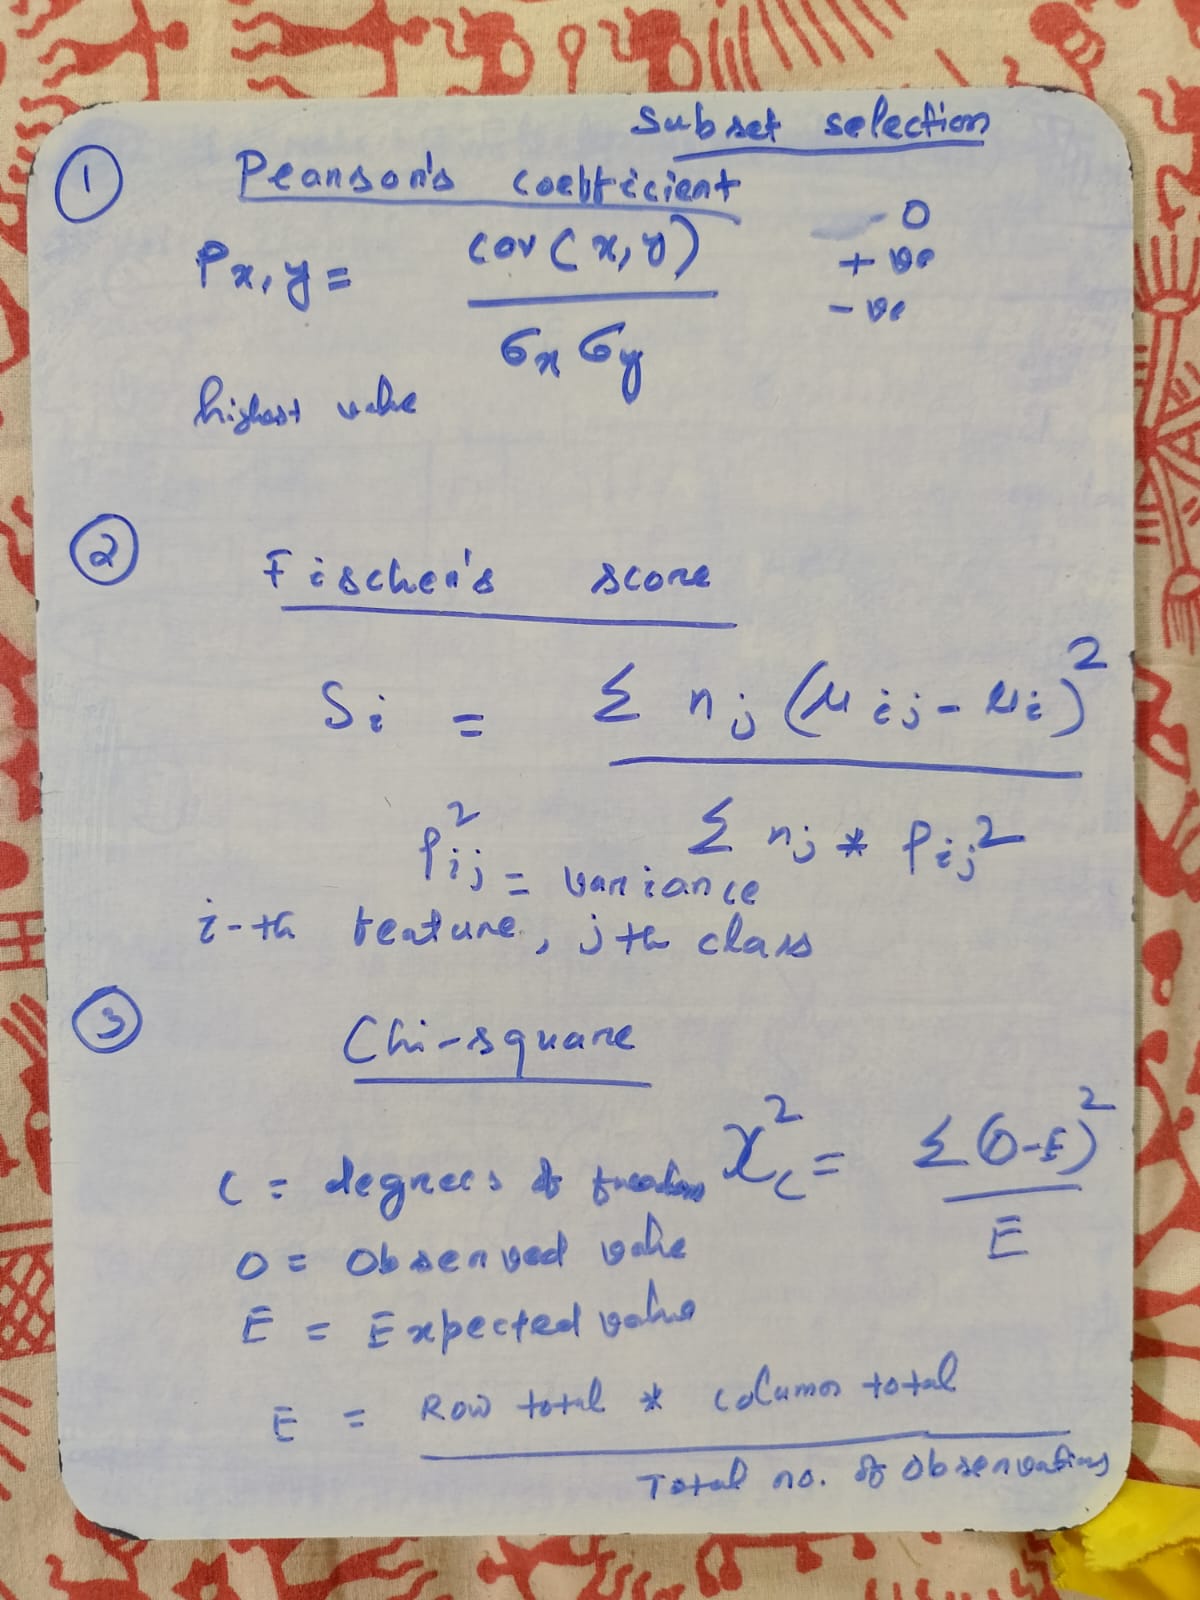 Subset selection
① Pearson's coefficient
ρx,y = cov(x,y) / σx σy
0
+ve
-ve
highest value
② Fischer's score
Si = Σ nj (μij - μi)² / Σ nj * ρij²
ρij² = variance
i-th feature, jth class
③ Chi-square
χc² = Σ(O-E)² / E
c = degrees of freedom
O = Observed value
E = Expected value
E = Row total * column total / Total no. of observations